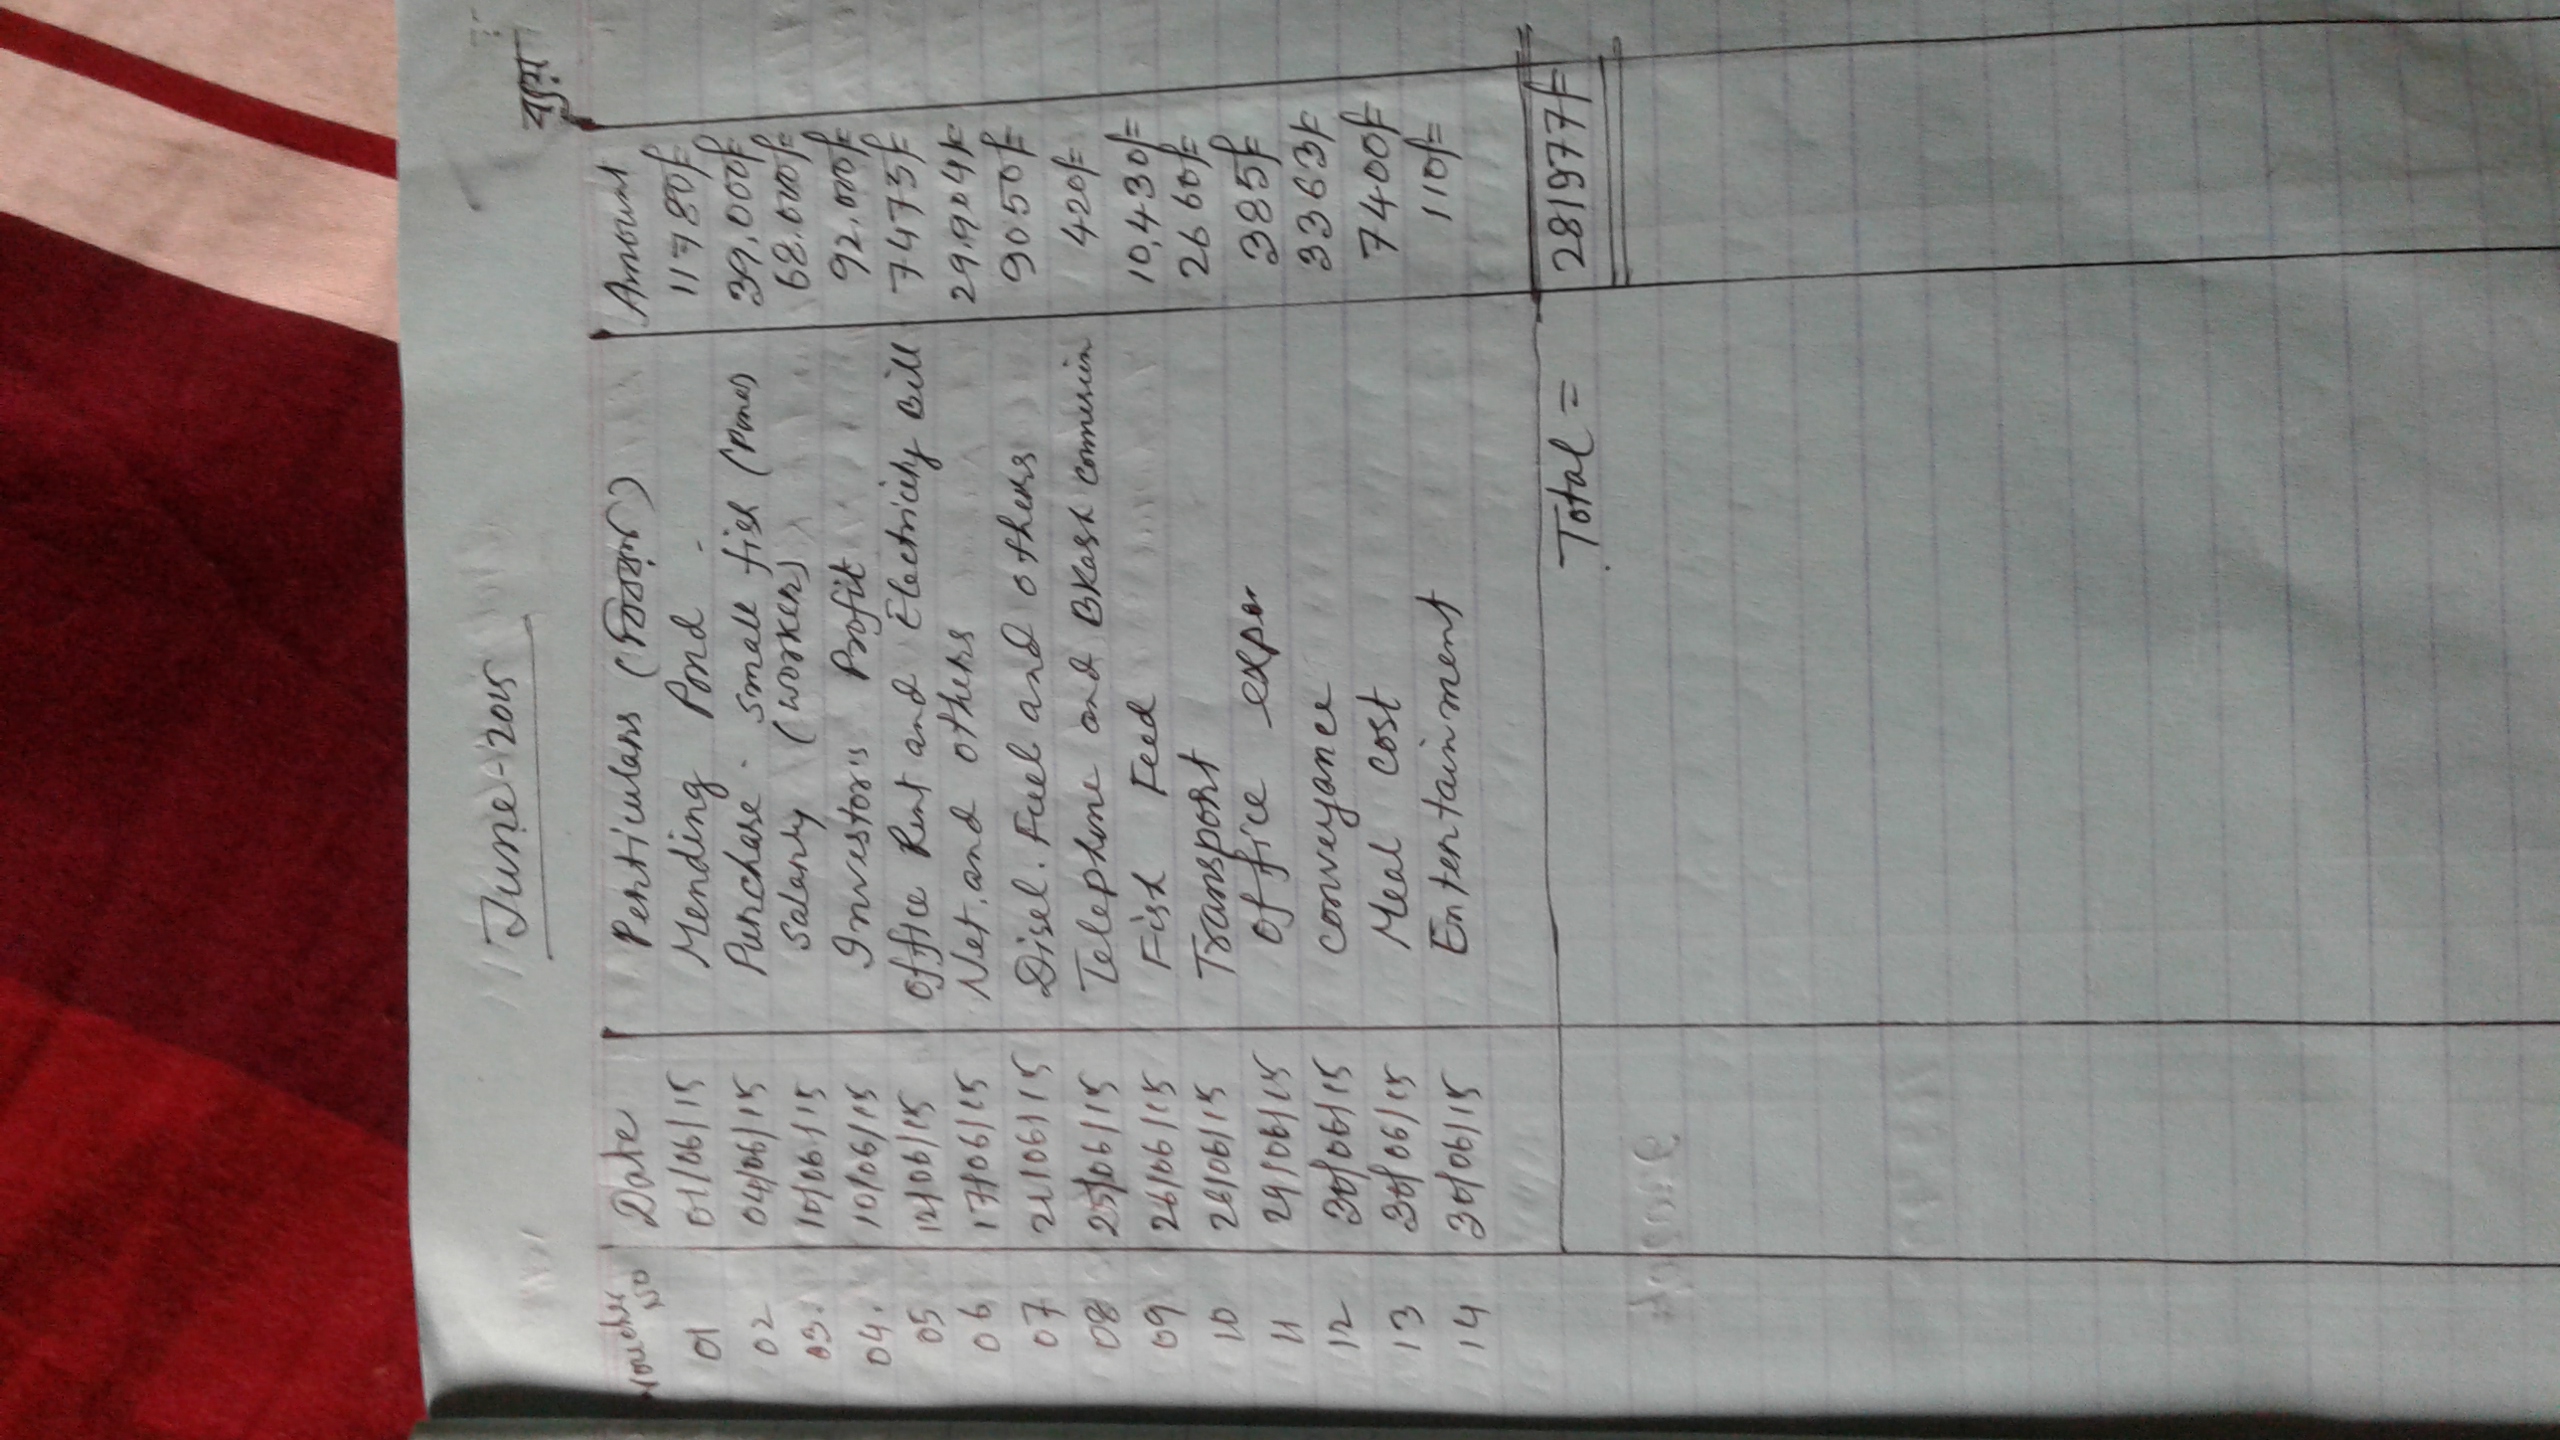 June-2015
ব্যয়
Voucher No Date Perticulars (বিবরণ) Amount
01 01/06/15 Mending Pond 11780/=
02 04/06/15 Purchase small fish (Pona) 39,000/=
03. 10/06/15 Salary (worker) 68.000/=
04. 10/06/15 Investor's Profit 92.000/=
05 12/06/15 Office Rent and Electricity Bill 7475/=
06 17/06/15 Net, and others 29,904/=
07 21/06/15 Disel. Fuel and others 9050/=
08 25/06/15 Telephone and BKash 420/=
09 26/06/15 Fish Feed 10,430/=
10 28/06/15 Transport 2660/=
11 29/06/15 office expen 385/=
12 30/06/15 conveyance 3363/=
13 30/06/15 Meal cost 7400/=
14 30/06/15 Entertainment 110/=
Total = 281977/=